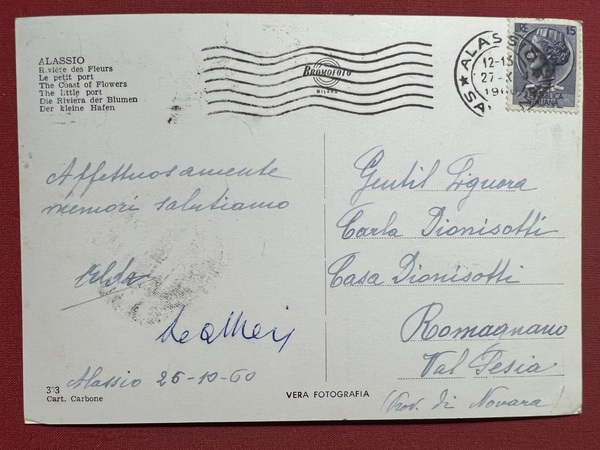 ALASSIO
Riviere des Fleurs
Le petit port
The Coast of Flowers
The little port
Die Riviera der Blumen
Der kleine Hafen
BROMOFOTO
MILANO
ALASSIO
12-15
27-X
15
ITALIANA
Affettuosamente
memori salutiamo
Alda
Alassio 25-10-60
Gentil Signora
Carla Dionisotti
Casa Dionisotti
Romagnano
Val Sesia
(Prov. di Novara)
Cart. Carbone
VERA FOTOGRAFIA